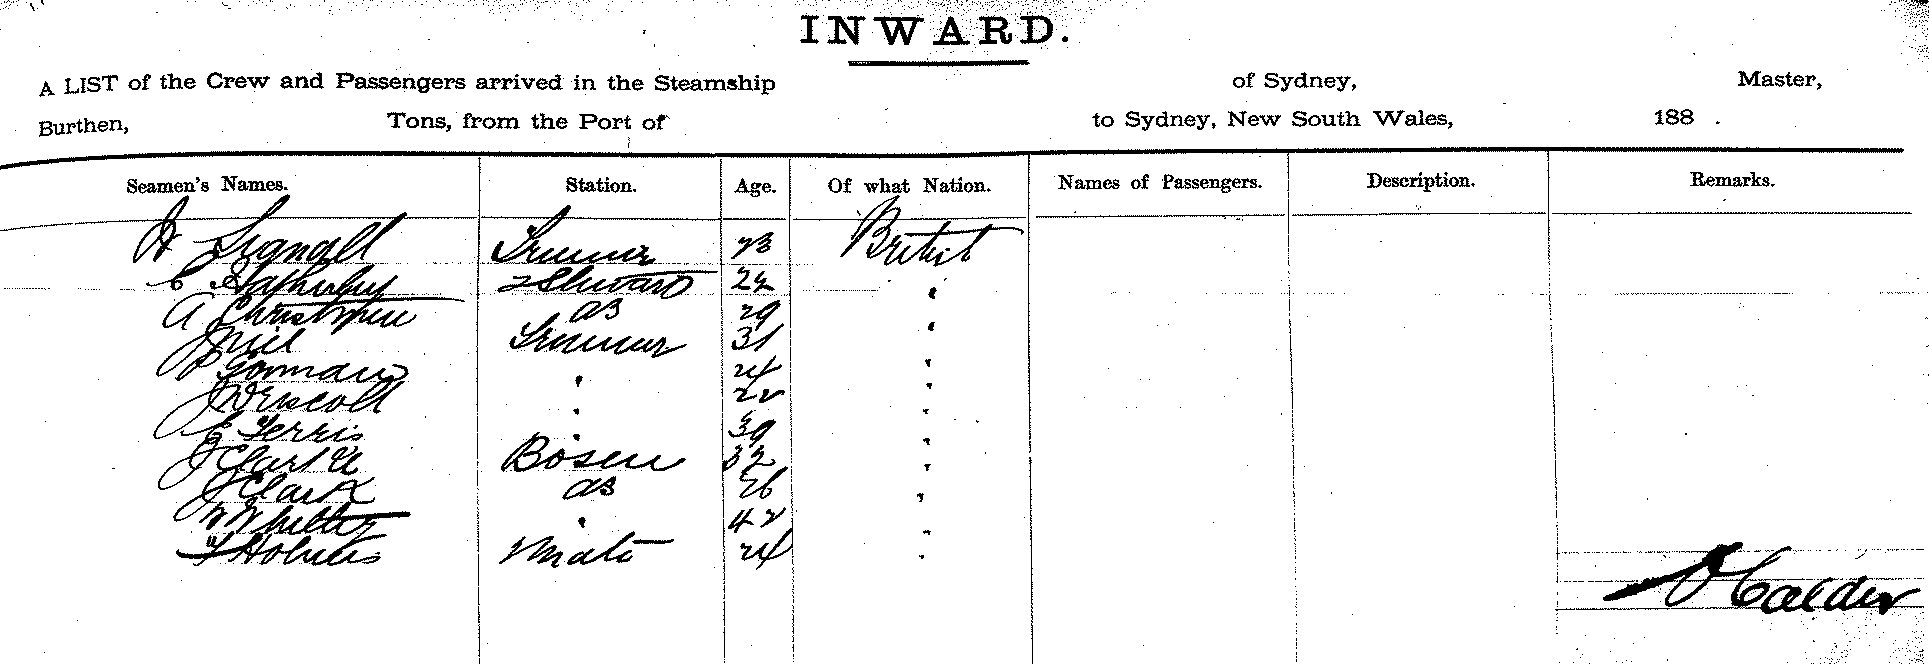 INWARD.
A LIST of the Crew and Passengers arrived in the Steamship of Sydney, Master,
Burthen, Tons, from the Port of to Sydney, New South Wales, 188 .
Seamen's Names. Station. Age. Of what Nation. Names of Passengers. Description. Remarks.
H Signall Trimmer 23 British
C 2 Steward 22 "
A as 29 "
J Neil Trimmer 31 "
Gorman " 24 "
J Driscoll " 22 "
E Ferris " 39 "
J Bosen 32 "
J Clark as 26 "
W " 42 "
Holmes 24 "
Calder